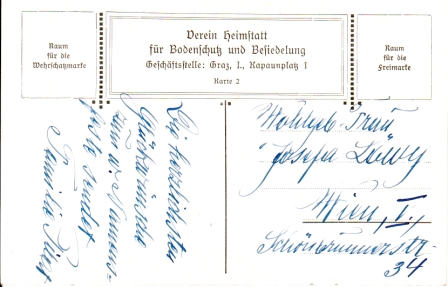 Raum
für die
Wehrschatzmarke
Verein Heimstatt
für Bodenschutz und Besiedelung
Geschäftsstelle: Graz, I., Kapaunplatz 1
Karte 2
Raum
für die
Freimarke
Die herzlichsten
Glückwünsche
zum w. Namens-
feste sendet
Familie
Wohlgeb. Frau
Josefa Löwy
Wien, V.,
Schönbrunnerstr
34